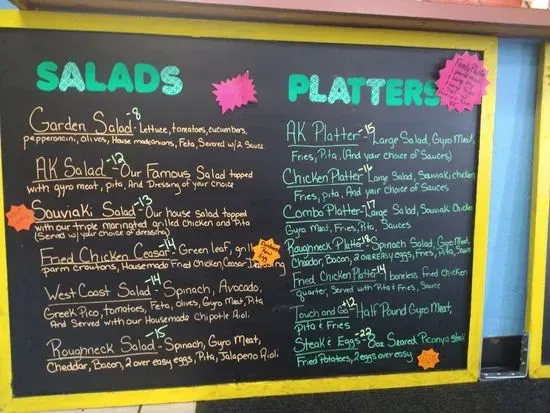 SALADS
Garden Salad-8 Lettuce, tomatoes, cucumbers,
pepperoncini, olives, House made onions, Feta, Served w/2 Sauce
AK Salad-12 Our Famous Salad topped
with gyro meat, pita, And Dressing of your choice
Souviaki Salad-13 Our house salad topped
with our triple marinated grilled chicken and Pita
(Served w/your choice of dressing)
Fried Chicken Ceasar-14 Green leaf, grilled
parm croutons, Housemade Fried Chicken, Ceasar Dressing
West Coast Salad-14 Spinach, Avocado,
Greek Pico, tomatoes, Feta, olives, Gyro Meat, Pita
And Served with our Housemade Chipotle Aioli
Roughneck Salad-15 Spinach, Gyro Meat,
Cheddar, Bacon, 2 over easy eggs, Pita, Jalapeno Aioli
PLATTERS
AK Platter-15 Large Salad, Gyro Meat,
Fries, Pita, (And your choice of Sauces)
Chicken Platter-16 Large Salad, Souvaki chicken
Fries, pita, And your choice of Sauces
Combo Platter-17 Large Salad, Souviak Chicken
Gyro Meat, Fries, Pita, Sauces
Roughneck Platter-18 Spinach Salad, Gyro Meat,
Cheddar, Bacon, 2 over easy eggs, Fries, Pita, Sauce
Fried Chicken Platter-14 boneless fried chicken
quarter, Served with Pita & Fries, Sauce
Touch and Go-12 Half Pound Gyro Meat,
Pita & Fries
Steak & Eggs-22 8oz Seared Piconya steak
Fried Potatoes, 2 eggs over easy